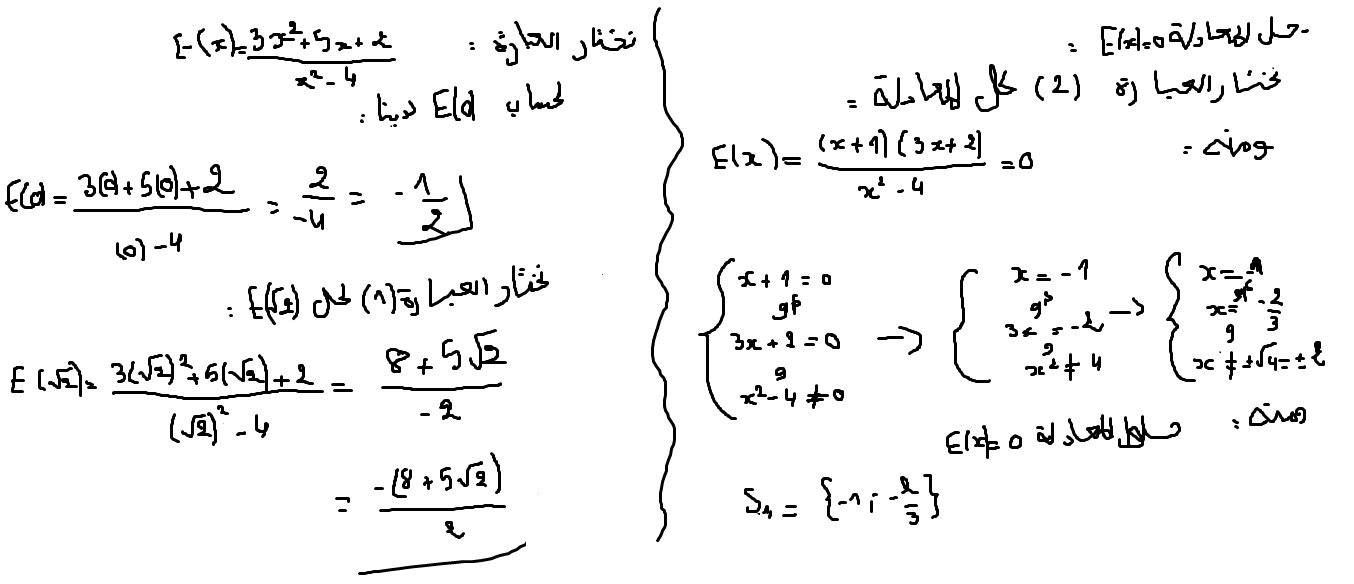 حل المعادلة E(x)=0 :
نختار العبارة (2) لحل المعادلة :
ومنه :
E(x) = (x+1)(3x+2) / x² - 4 = 0
{ x+1=0 أو 3x+2=0 و x²-4≠0 → { x=-1 أو 3x=-2 و x²≠4 → { x=-1 أو x=-2/3 و x≠±√4=±2
ومنه : حلول المعادلة E(x)=0
S₁ = {-1 ; -2/3}
نختار العبارة : E(x)= 3x²+5x+2 / x²-4
لحساب E(0) لدينا :
E(0) = 3(0)+5(0)+2 / (0)-4 = 2/-4 = -1/2
نختار العبارة (1) لحل E(√2) :
E(√2)= 3(√2)²+5(√2)+2 / (√2)²-4 = 8+5√2 / -2
= -(8+5√2) / 2